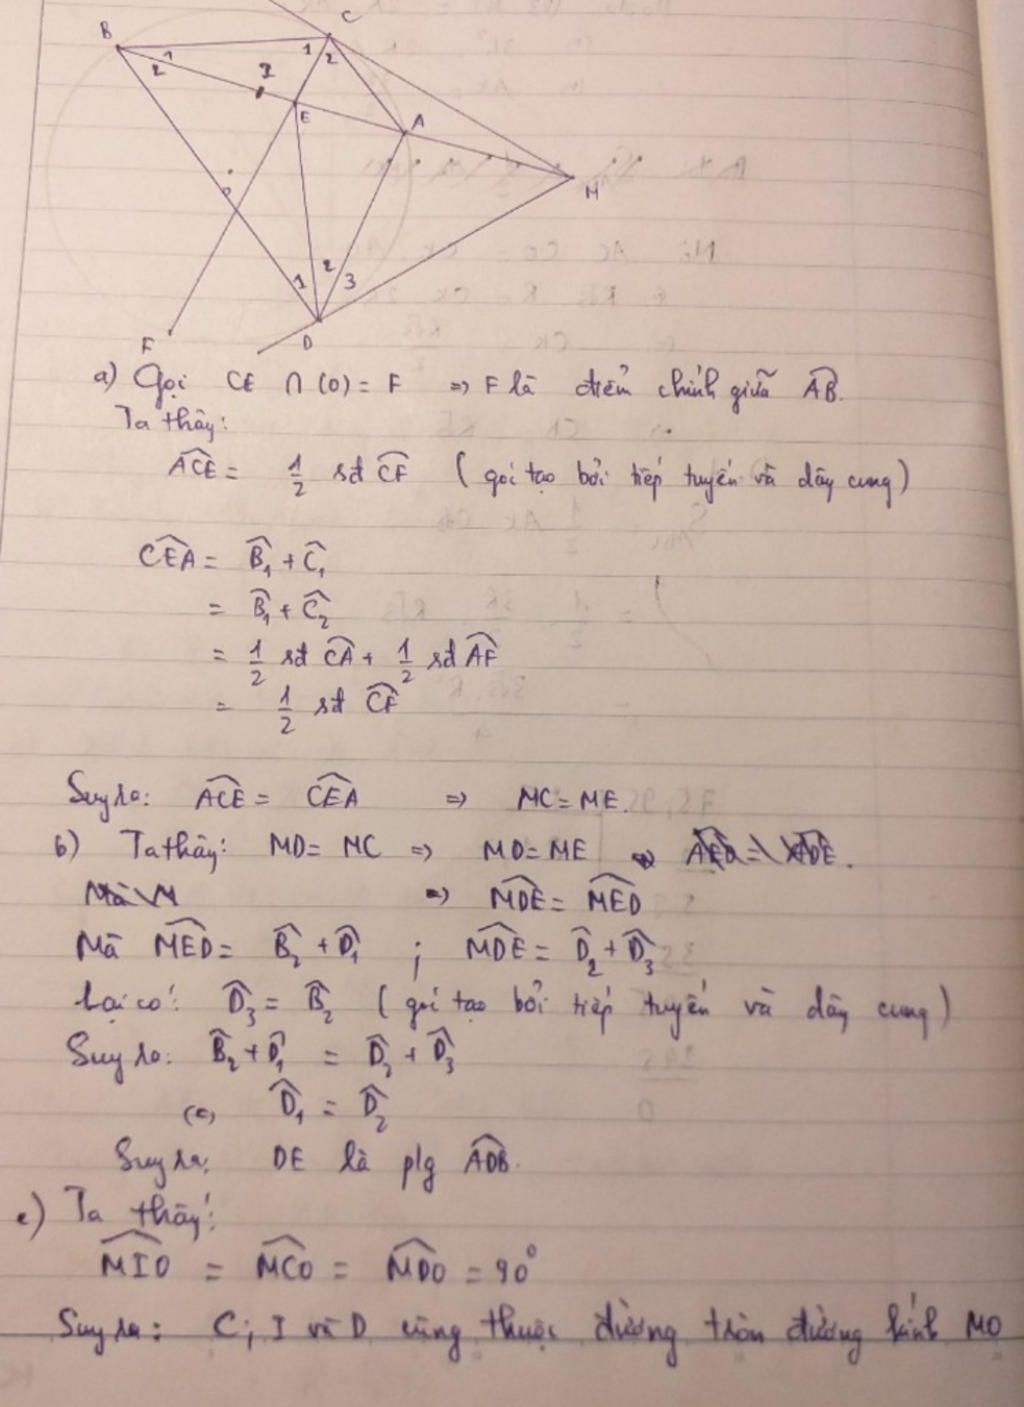 B
C
1
2
1
2
I
E
A
M
1
2
3
F
D
a) Gọi CE ∩ (O) = F => F là điểm chính giữa AB.
Ta thấy:
ACE = 1/2 sđ CF ( góc tạo bởi tiếp tuyến và dây cung )
CEA = B₁ + C₁
= B₁ + C₂
= 1/2 sđ CA + 1/2 sđ AF
= 1/2 sđ CF
Suy ra: ACE = CEA => MC = ME.
b) Ta thấy: MD = MC => MD = ME
=> MDE = MED
Mà MED = B₂ + D₁ ; MDE = D₂ + D₃
Lại có: D₃ = B₂ ( góc tạo bởi tiếp tuyến và dây cung )
Suy ra: B₂ + D₁ = D₂ + D₃
(=) D₁ = D₂
Suy ra: DE là p/g ADB.
c) Ta thấy:
MIO = MCO = MDO = 90°
Suy ra: C; I và D cùng thuộc đường tròn đường kính MO